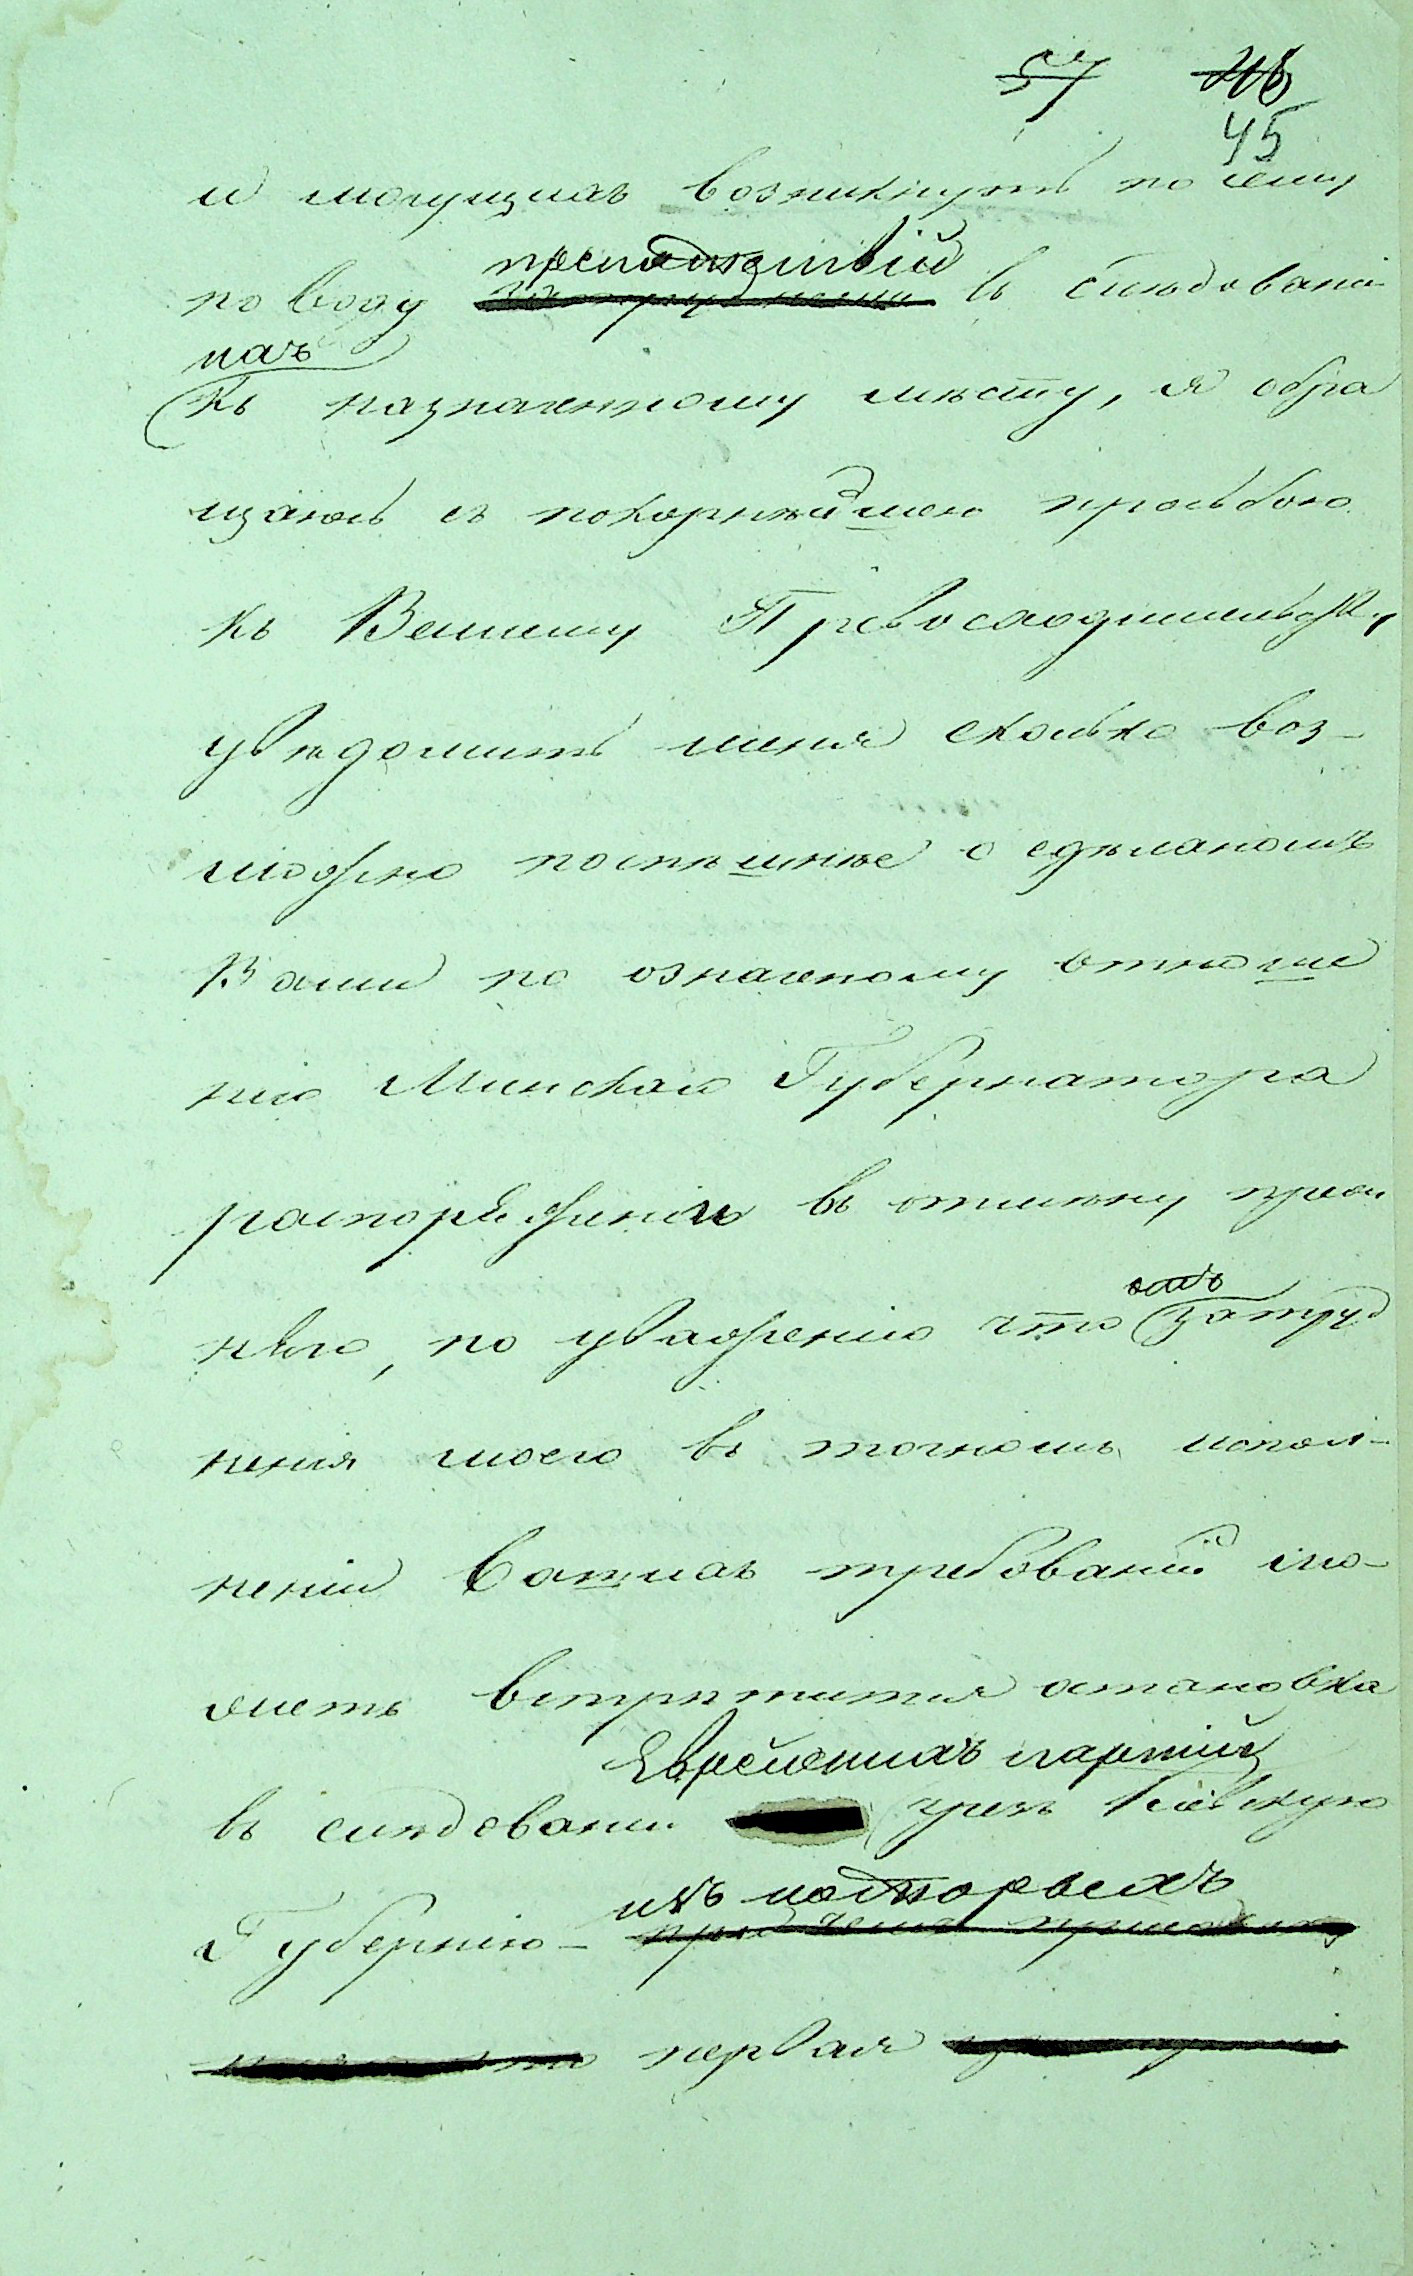 57 46
45
и могущихъ возникнуть по сему
препятствій
поводу затрудненій въ следовани
ихъ
къ назначенному мѣсту, я обра
щаюсь съ покорнѣйшею прозьбою
къ Вашему Превосходительству
увѣдомить меня сколько воз-
можно поспѣшнѣе о сдѣланомъ
Вами по означеному отноше
нію Минскаго Губернатора
распоряженіи въ отмѣну преж
нѣго, по уваженію что затруд
ненія моего въ точномъ испол-
неніи Вашихъ требованій мо-
жетъ встрѣтится остановка
Еврейскихъ партій
въ следовани чрезъ Кіевскую
изъ которыхъ
Губернію-
первая